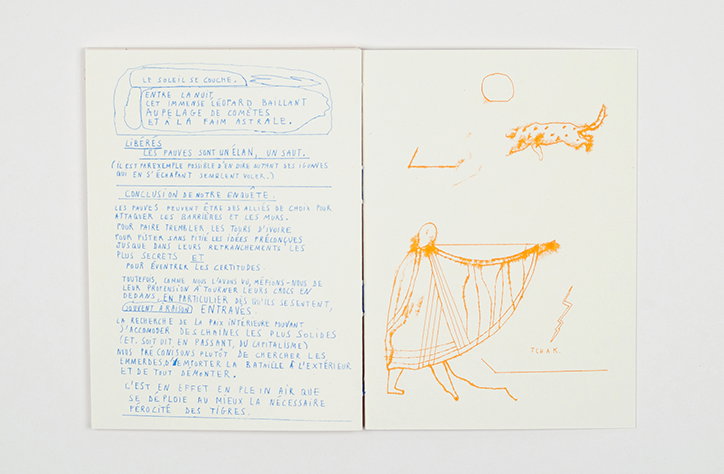 LE SOLEIL SE COUCHE.
ENTRE LA NUIT,
CET IMMENSE LÉOPARD BAILLANT
AU PELAGE DE COMÈTES
ET A LA FAIM ASTRALE.
LIBÉRÉS
LES FAUVES SONT UN ÉLAN, UN SAUT.
(IL EST PAR EXEMPLE POSSIBLE D'EN DIRE AUTANT DES IGUANES
QUI EN S'ÉCHAPANT SEMBLENT VOLER.)
CONCLUSION DE NOTRE ENQUÊTE.
LES FAUVES PEUVENT ÊTRE DES ALLIÉS DE CHOIX POUR
ATTAQUER LES BARRIÈRES ET LES MURS.
POUR FAIRE TREMBLER LES TOURS D'IVOIRE
POUR PISTER SANS PITIÉ LES IDÉES PRÉCONÇUES
JUSQUE DANS LEURS RETRANCHEMENTS LES
PLUS SECRETS ET
POUR ÉVENTRER LES CERTITUDES.
TOUTEFOIS, COMME NOUS L'AVONS VU, MÉFIONS-NOUS DE
LEUR PROPENSION À TOURNER LEURS CROCS EN
DEDANS, EN PARTICULIER DÈS QU'ILS SE SENTENT,
(SOUVENT À RAISON) ENTRAVÉS.
LA RECHERCHE DE LA PAIX INTÉRIEURE POUVANT
S'ACCOMODER DES CHAINES LES PLUS SOLIDES
(ET, SOIT DIT EN PASSANT, DU CAPITALISME)
NOUS PRÉCONISONS PLUTÔT DE CHERCHER LES
EMMERDES, D'EMPORTER LA BATAILLE À L'EXTÉRIEUR
ET DE TOUT DÉMONTER.
C'EST EN EFFET EN PLEIN AIR QUE
SE DÉPLOIE AU MIEUX LA NÉCESSAIRE
FÉROCITÉ DES TIGRES.
TCHAK.